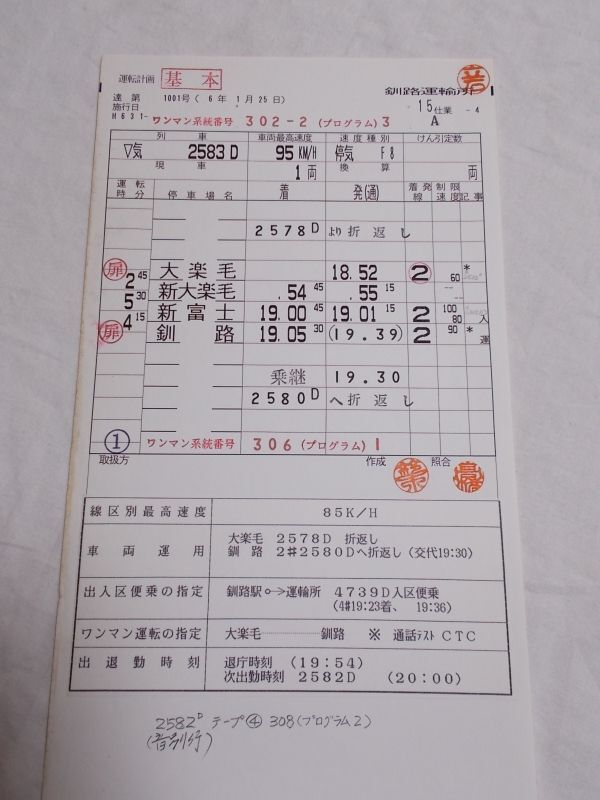 運転計画 基本
達 第 1001号( 6年 1月25日)
釧路運輸所
施行日
H631-
ワンマン系統番号 302-2 (プログラム) 3
15仕業 -4
A
列車 車両最高速度 速度種別 けん引定数
▽気 2583D 95KM/H 停気 F8
現車 1両 換算 両
運転時分 停車場名 着 発(通) 着発線 制限速度 記事
2578D より折返し
扉 大楽毛 18.52 2 60 *
2 45
新大楽毛 .54 45 .55 15 -- --
5 30
新富士 19.00 45 19.01 15 2 100 80 入
4 15
扉 釧路 19.05 30 (19.39) 2 90 * 運
乗継 19.30
2580D へ折返し
① ワンマン系統番号 306 (プログラム) 1
取扱方 作成 照合
線区別最高速度 85K/H
車両運用 大楽毛 2578D 折返し
釧路 2♯2580Dへ折返し (交代19:30)
出入区便乗の指定 釧路駅⟷運輸所 4739D入区便乗
(4♯19:23着、 19:36)
ワンマン運転の指定 大楽毛 釧路 ※ 通話テスト CTC
出退勤時刻 退庁時刻 (19:54)
次出勤時刻 2582D (20:00)
2582D テープ④ 308(プログラム2)
(音別行)